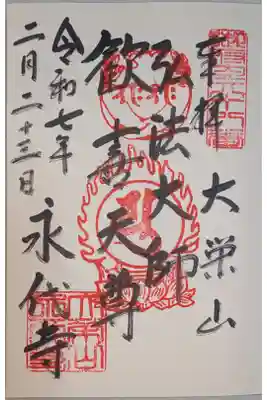 奉拝
大栄山
弘法大師
歓喜天尊
永代寺
令和七年
二月二十三日